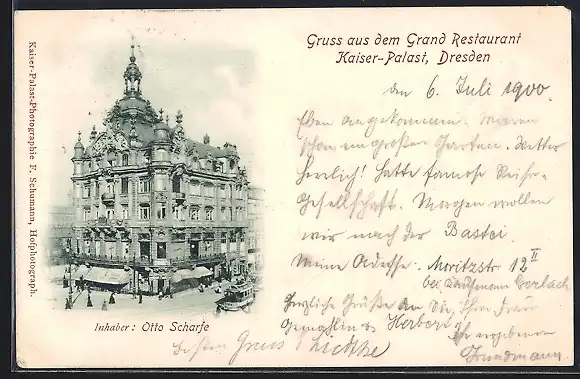 Gruss aus dem Grand Restaurant
Kaiser-Palast, Dresden
Kaiser-Palast-Photographie F. Schumann, Hofphotograph.
den 6. Juli 1900.
Eben angekommen. Waren
schon im großen Garten. Wetter
herrlich! Hatte famose Reise-
gesellschaft. Morgen wollen
wir nach der Bastei.
Meine Adresse. Moritzstr 12 II
bei Kaufmann Gerlach
Herzliche Grüße an Sie, Ihre Frau
Gemahlin u Herbert
Ihr ergebener
Inhaber: Otto Scharfe
besten Gruss